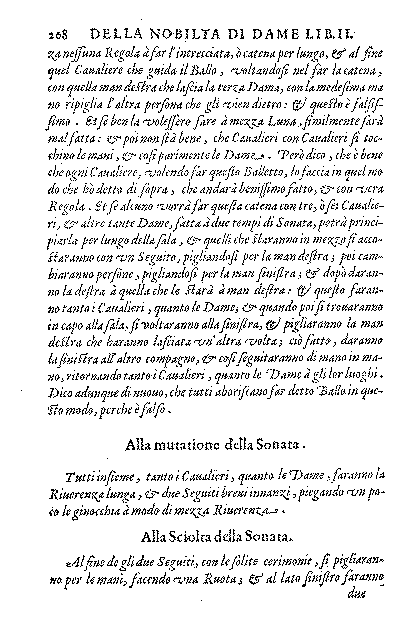 268 DELLA NOBILTA DI DAME LIB. II.
za nessuna Regola à far l'intrecciata, ò catena per lungo, & al fine
quel Caualiere che guida il Ballo, voltandosi nel far la catena,
con quella man destra che lascia la terza Dama, con la medesima ma
no ripiglia l'altra persona che gli vien dietro: & questo è falsis-
simo. Et se ben la volessero fare à mezza Luna, similmente sarà
mal fatta: & poi non stà bene, che Caualieri con Caualieri si toc-
chino le mani, & così parimente le Dame. Però dico, che è bene
che ogni Caualiere, volendo far questo Balletto, lo faccia in quel mo
do che hò detto di sopra, che andarà benissimo fatto, & con vera
Regola. Et se alcuno vorrà far questa catena con tre, ò sei Caualie-
ri, & altre tante Dame, fatta à due tempi di Sonata, potrà princi-
piarla per lungo della sala, & quelli che staranno in mezzo si acco-
staranno con vn Seguito, pigliandosi per la man destra; poi cam-
biaranno persone, pigliandosi per la man sinistra; & dopò daran-
no la destra à quella che le starà à man destra: & questo faran-
no tanto i Caualieri, quanto le Dame; & quando poi si trouaranno
in capo alla sala, si voltaranno alla sinistra, & pigliaranno la man
destra che haranno lasciata vn'altra volta; ciò fatto, daranno
la sinistra all'altro compagno, & così seguitaranno di mano in ma-
no, ritornando tanto i Caualieri, quanto le Dame à gli lor luoghi.
Dico adunque di nuouo, che tutti aboriscano far detto Ballo in que-
sto modo, perche è falso.
Alla mutatione della Sonata.
Tutti insieme, tanto i Caualieri, quanto le Dame, faranno la
Riuerenza lunga, & due Seguiti breui innanzi, piegando vn po-
co le ginocchia à modo di mezza Riuerenza.
Alla Sciolta della Sonata.
Al fine de gli due Seguiti, con le solite cerimonie, si pigliaran-
no per le mani, facendo vna Ruota; & al lato sinistro faranno
due